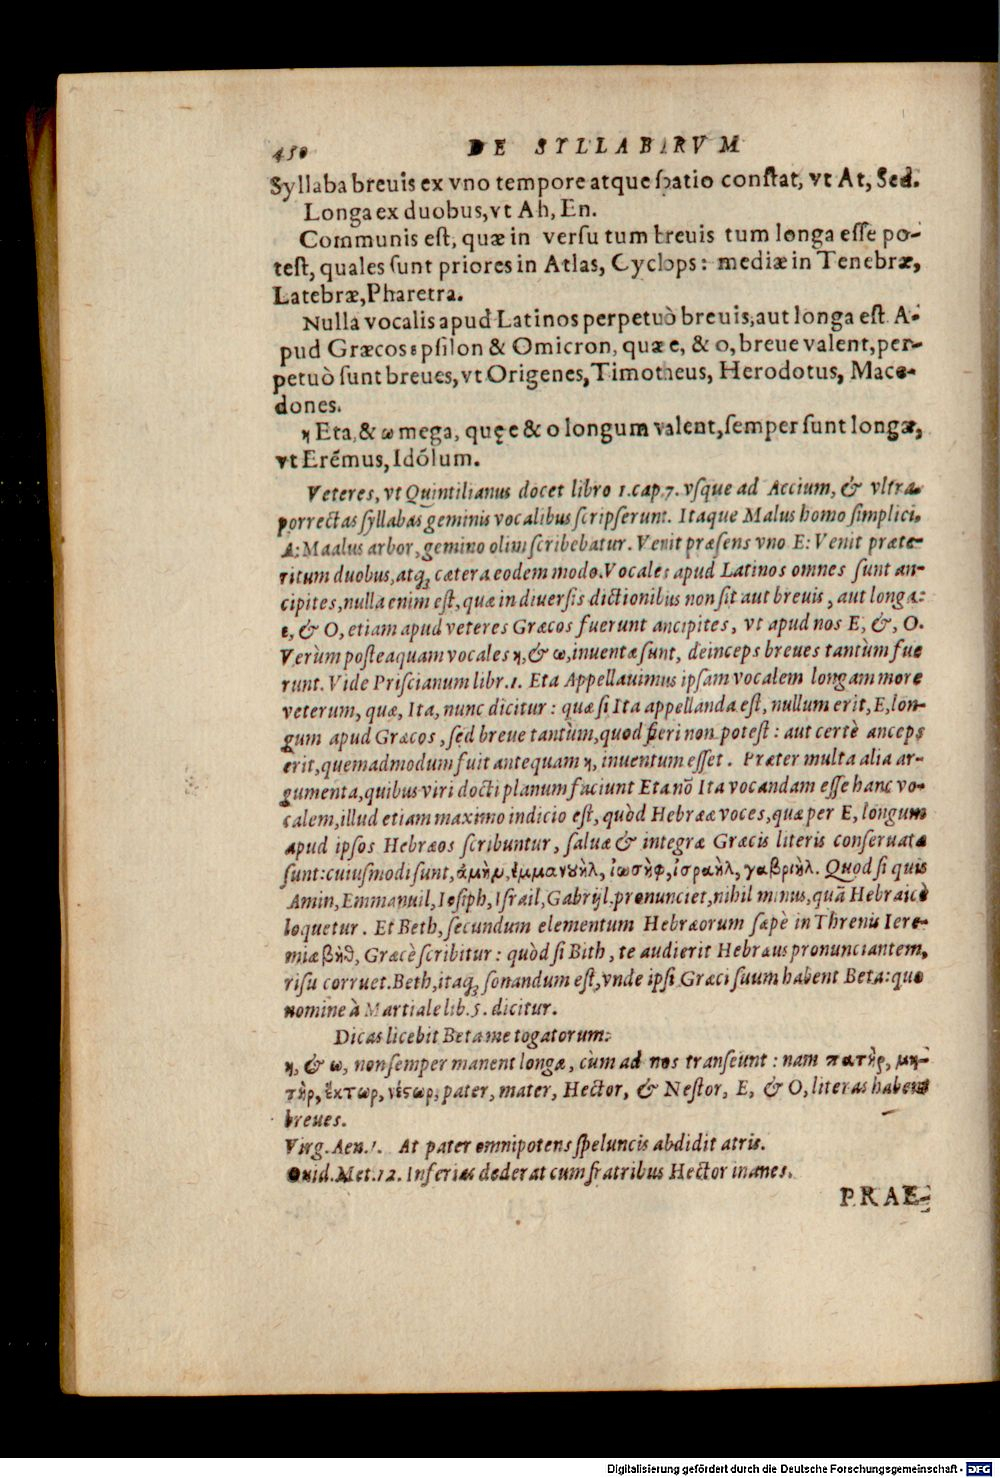 450 DE SYLLABARVM
Syllaba breuis ex vno tempore atque spatio constat, vt At, Sed.
Longa ex duobus, vt Ah, En.
Communis est, quæ in versu tum breuis tum longa esse po-
test, quales sunt priores in Atlas, Cyclops: mediæ in Tenebræ,
Latebræ, Pharetra.
Nulla vocalis apud Latinos perpetuò breuis, aut longa est A-
pud Græcos epsilon & Omicron, quæ e, & o, breue valent, per-
petuò sunt breues, vt Origenes, Timotheus, Herodotus, Mace-
dones.
η Eta, & ω mega, quę e & o longum valent, semper sunt longæ,
vt Erémus, Idólum.
Veteres, vt Quintilianus docet libro 1.cap.7. vsque ad Accium, & vltra
porrectas syllabas geminis vocalibus scripserunt. Itaque Malus homo simplici,
A: Maalus arbor, gemino olim scribebatur. Venit præsens vno E: Venit præte-
ritum duobus, atq; cætera eodem modo. Vocales apud Latinos omnes sunt an-
cipites, nulla enim est, quæ in diuersis dictionibus non sit aut breuis, aut longa:
e, & O, etiam apud veteres Græcos fuerunt ancipites, vt apud nos E, &, O.
Verùm posteaquam vocales η, & ω, inuentæ sunt, deinceps breues tantùm fue
runt. Vide Priscianum libr.1. Eta Appellauimus ipsam vocalem longam more
veterum, quæ, Ita, nunc dicitur: quæ si Ita appellanda est, nullum erit, E, lon-
gum apud Græcos, sed breue tantùm, quod fieri non potest: aut certè anceps
erit, quemadmodum fuit antequam η, inuentum esset. Præter multa alia ar-
gumenta, quibus viri docti planum faciunt Eta nō Ita vocandam esse hanc vo-
calem, illud etiam maximo indicio est, quòd Hebrææ voces, quæ per E, longum
apud ipsos Hebræos scribuntur, saluæ & integræ Græcis literis conseruatæ
sunt: cuiusmodi sunt, ἀμὴν, ἐμμανουὴλ, ἰωσὴφ, ἰσραὴλ, γαβριὴλ. Quod si quis
Amin, Emmanuil, Iosiph, Israil, Gabrijl. pronunciet, nihil minus, quā Hebraicè
loquetur. Et Beth, secundum elementum Hebræorum sæpè in Threnis Iere-
miæ βὴθ, Græcè scribitur: quòd si Bith, te audierit Hebræus pronunciantem,
risu corruet. Beth, itaq; sonandum est, vnde ipsi Græci suum habent Beta: quo
nomine à Martiale lib.5. dicitur.
Dicas licebit Beta me togatorum.
η, & ω, non semper manent longæ, cùm ad nos transeunt: nam πατὴρ, μη-
τὴρ, ἕκτωρ, νέστωρ, pater, mater, Hector, & Nestor, E, & O, literas habent
breues.
Virg. Aen.1. At pater omnipotens speluncis abdidit atris.
Ouid. Met.12. Inferias dederat cum fratribus Hector inanes.
PRAE-
Digitalisierung gefördert durch die Deutsche Forschungsgemeinschaft - DFG